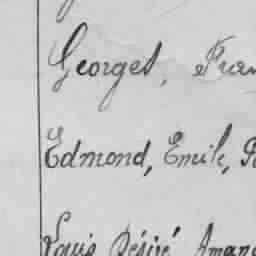 Georges, Fran
Edmond, Emile,
Louis Désiré Aman